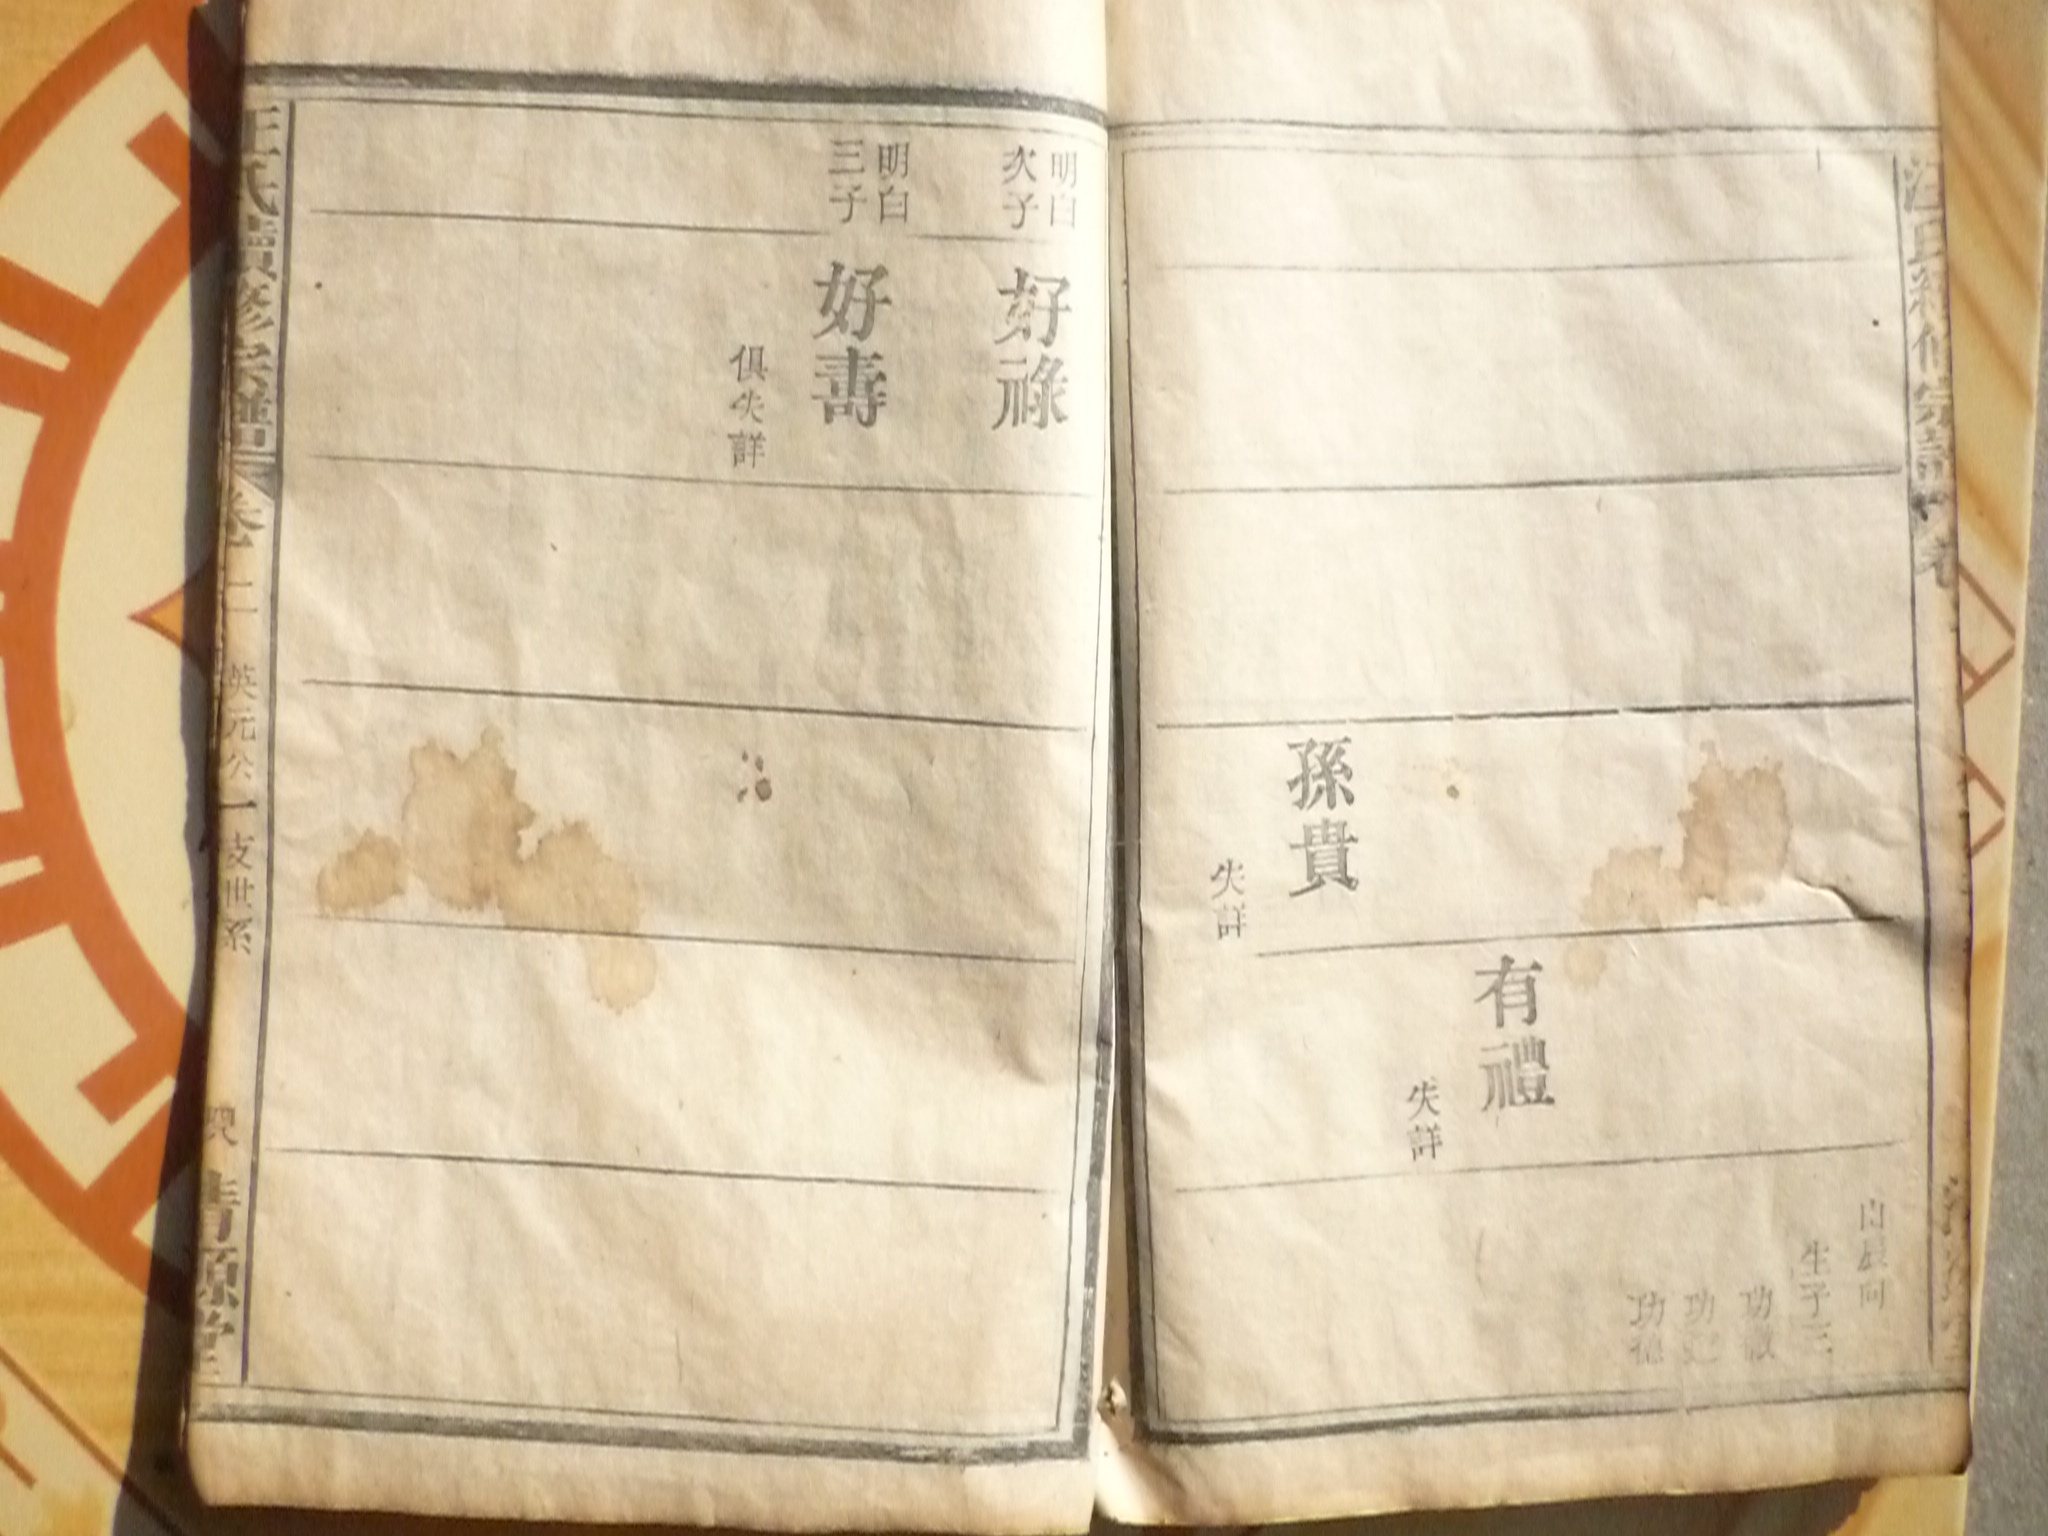 汪氏續修宗譜 卷
白辰向
生子三
功
功
功德
有禮
失詳
孫貴
失詳
明白
次子
好祿
明白
三子
好壽
俱失詳
汪氏續修宗譜 卷二 英元公一支世系 清源堂